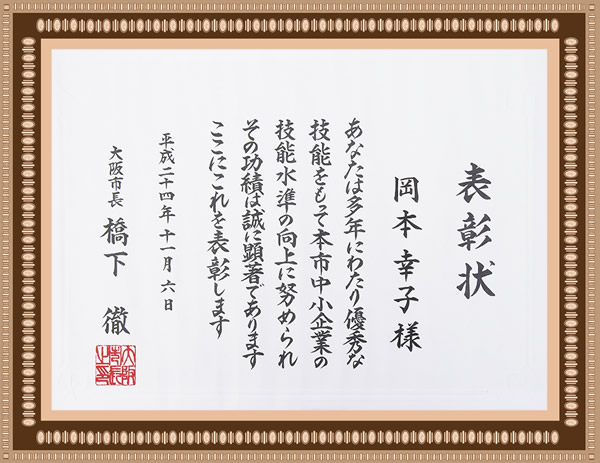 表彰状
岡本 幸子 様
あなたは多年にわたり優秀な
技能をもって本市中小企業の
技能水準の向上に努められ
その功績は誠に顕著であります
ここにこれを表彰します
平成二十四年 十一月 六日
大阪市長 橋下 徹
大阪
市長
之印